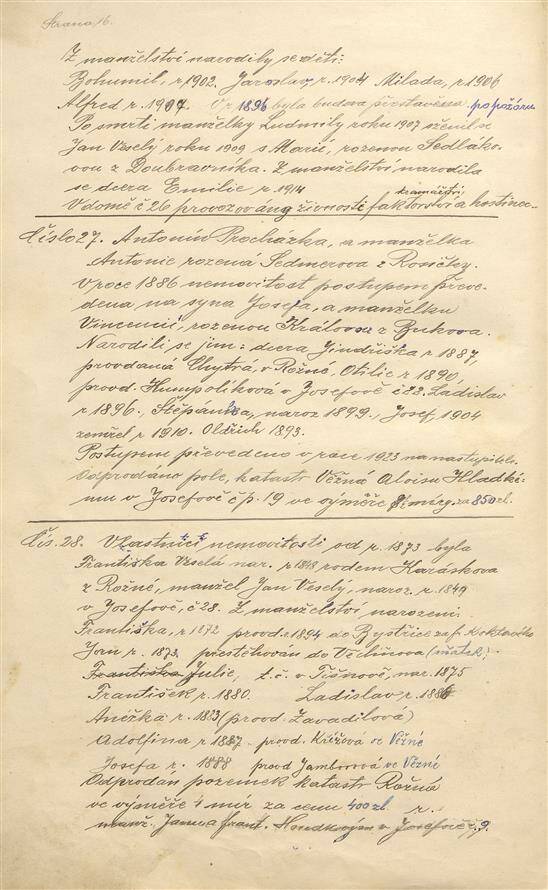 Strana 16.
Z manželství narodily se děti:
Bohumil, r 1902. Jaroslav, r. 1904 Milada, r 1906
Alfred r. 1907. V r 1896 byla budova přestavěna po požáru
Po smrti manželky Ludmily roku 1907 oženil se
Jan Veselý roku 1909 s Marií, rozenou Sedláko-
vou z Doubravníka. Z manželství narodila
se dcera Emilie r. 1914
kramářství
V domě č 26 provozovány živnosti faktorství a hostinec.
Číslo 27. Antonín Procházka, a manželka
Antonie rozená Sedmerova z Rosičky.
V roce 1886 nemovitost postupem převe-
dena na syna Josefa, a manželku
Vincencii, rozenou Královou z Bukova.
Narodili se jim: dcera Jindřiška r 1887,
provdaná Chytrá, v Rožné, Otilie r 1890,
provd. Humpolíková v Josefově č 28. Ladislav
r 1896., Štěpánka, naroz 1899., Josef, 1904
zemřel r 1910. Oldřich 1893.
Postupem převedeno v roce 1923 na
Odprodáno pole, katastr Věžná Aloisu Hladké-
mu v Josefově čp. 19 ve výměře za 850 zl.
Čís. 28. Vlastníci nemovitosti od r. 1873 byla
Františka Veselá nar. r 1848 rodem Karáskova
z Rožné, manžel Jan Veselý, naroz. r. 1849
v Josefově, č 28. Z manželství narozeni
Františka, r 1872 provd. r. 1894 do Bystřice za
Jan r. 1873. přestěhován do Věchnova
Františka Julie, t. č. v Tišnově, nar. 1875
František r. 1880. Ladislav r. 1886
Anežka r. 1883 (provd. Zavadilová)
Adolfina r 1887 provd. Křížová ve Věžné
Josefa r. 1888 provd Jamborová ve Věžné
Odprodán pozemek katastr Rožná
ve výměře 1 mír za cenu 400 zl. r.
manž. Janu a Frant. v Josefově č. 9.